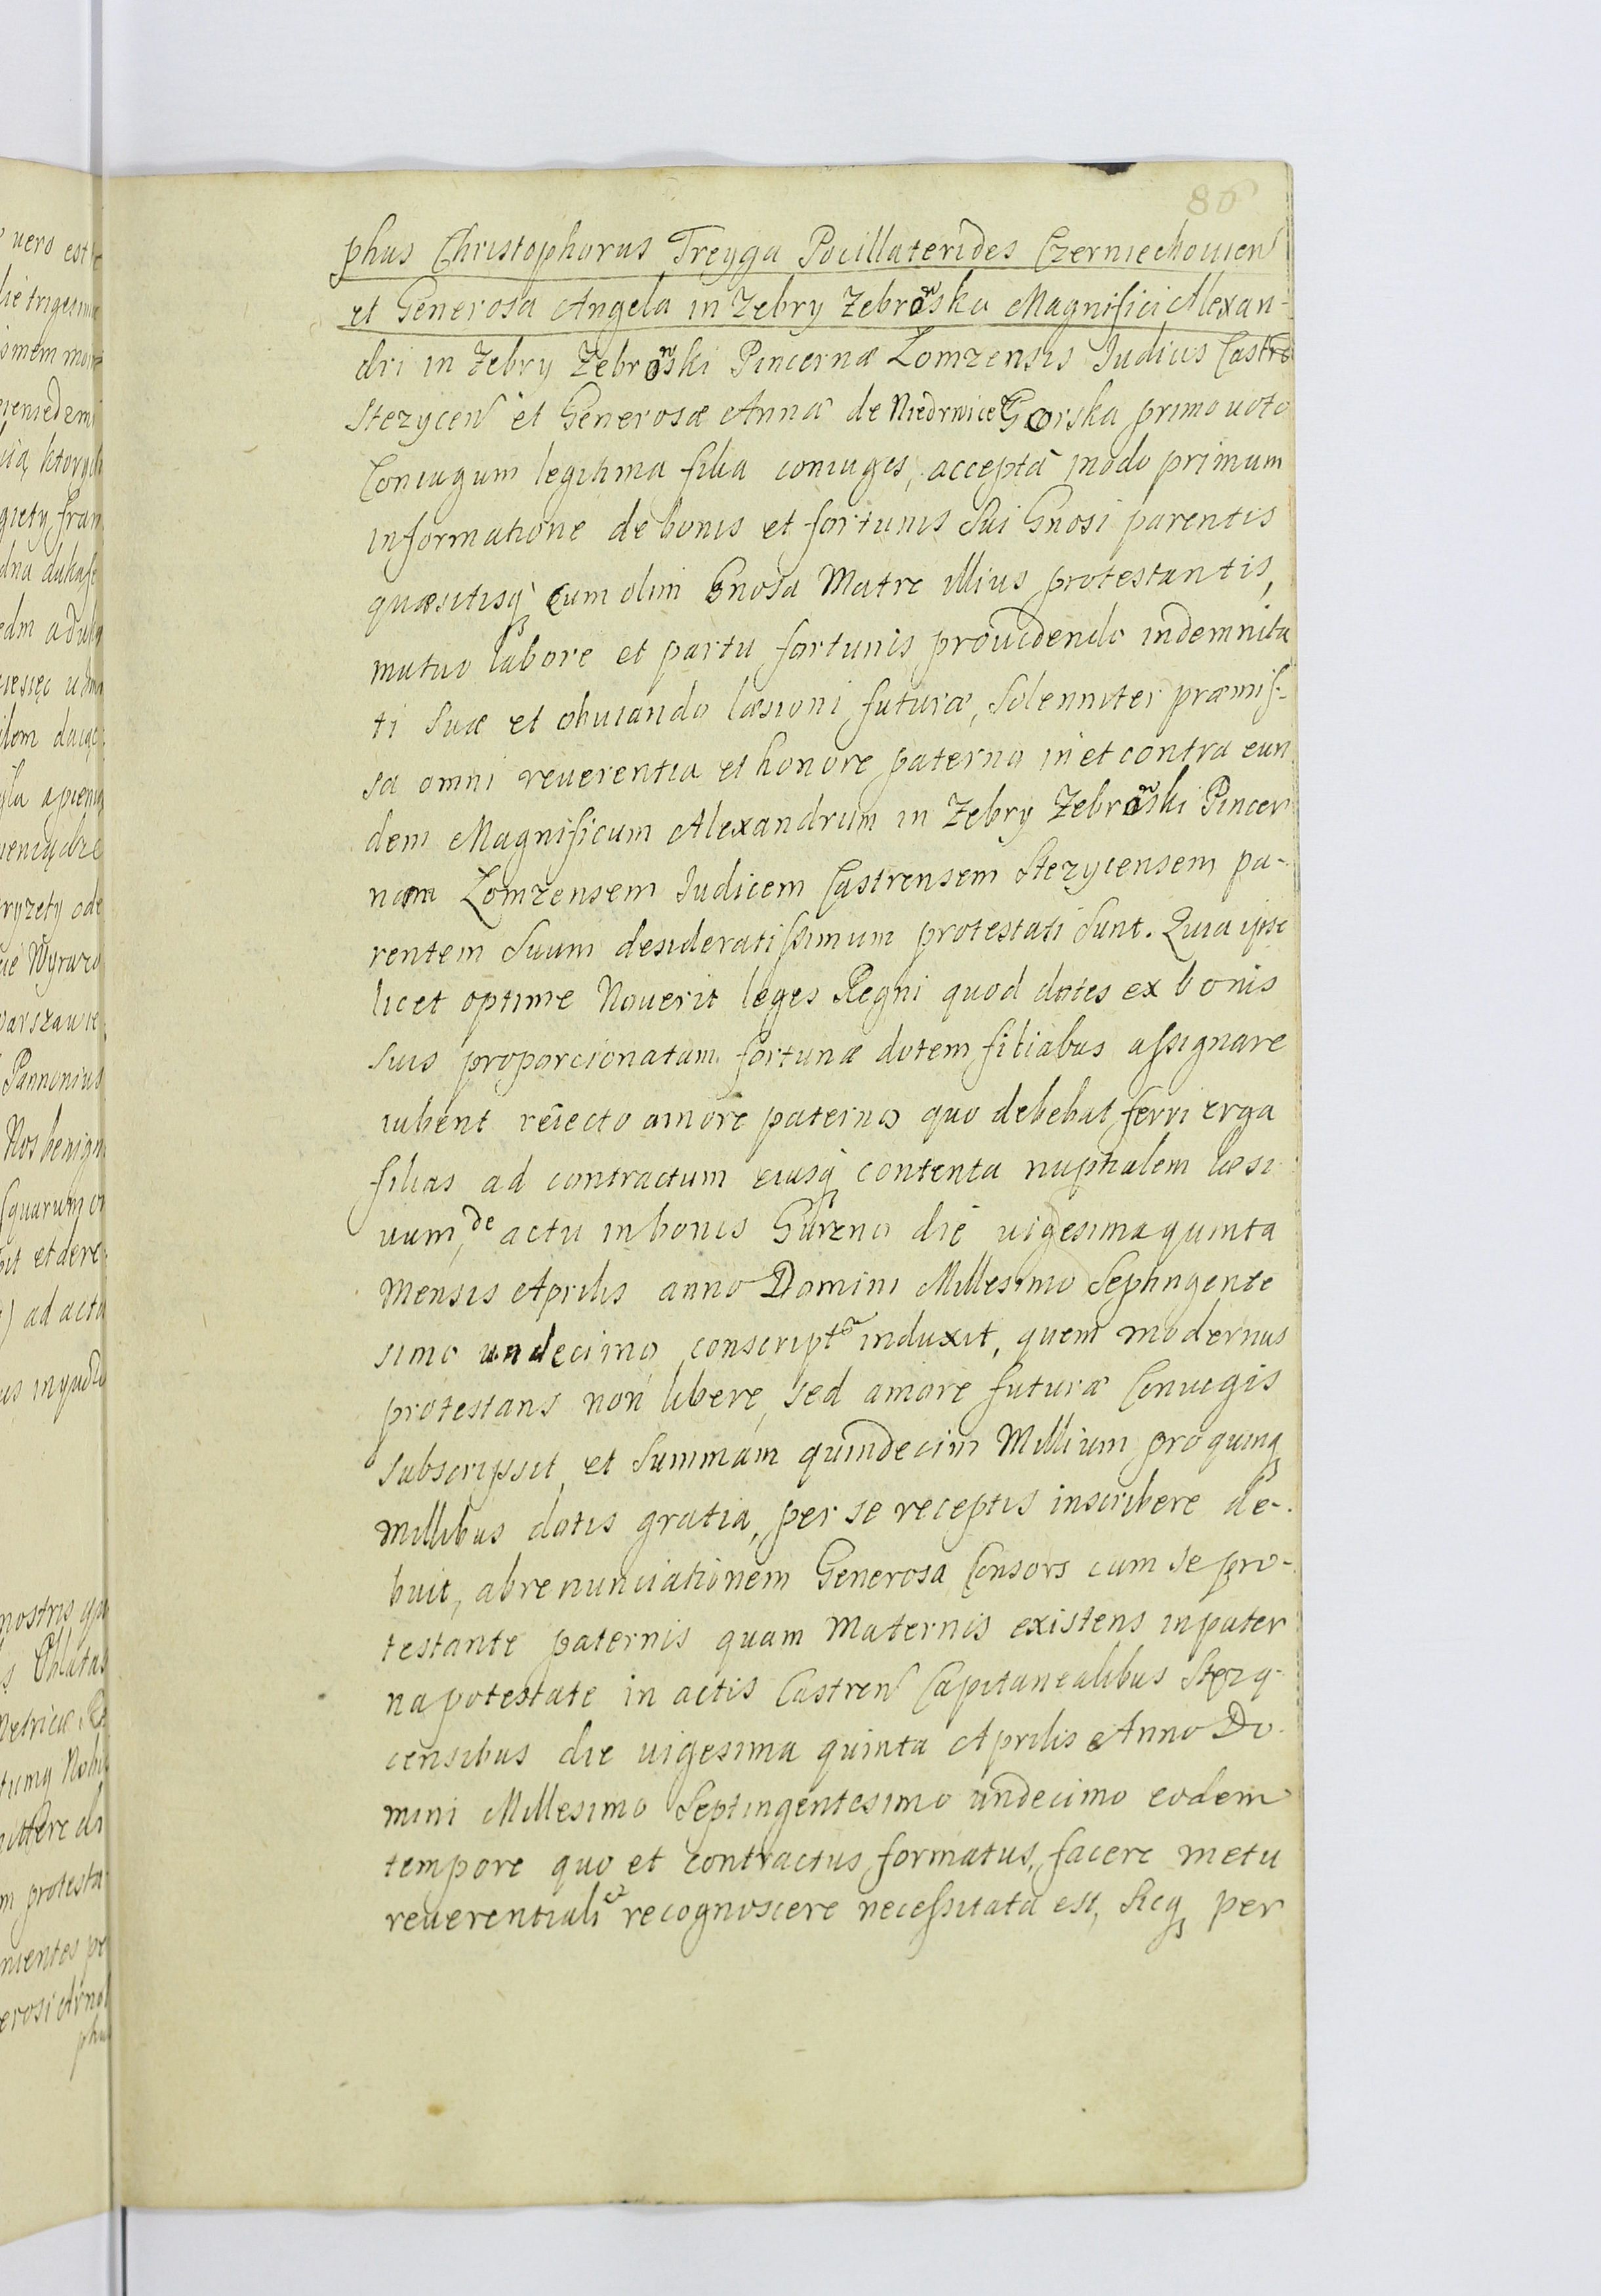 86
phus Christophorus Treyga Pocillaterides Czerniechouien
et Generosa Angela in Zebry Zebrowska Magnifici Alexan-
dri in Zebry Zebrowski Pincernæ Lomzensis Iudicis Castre
Stezycen et Generosæ Anna de Niedrwice Gorska primo uoto
Coniugum legitima filia coniuges, accepta modo primum
informatione de bonis et fortunis Sui Gnosi parentis
quæsitisq cum olim Gnosa Matre illius protestantis,
mutuo labore et partu fortunis prouidendo indemnita
ti Suæ et obuiando læsioni futuræ, Solenniter præmis-
sa omni reuerentia et honore paterno in et contra eun
dem Magnificum Alexandrum in Zebry Zebrowski Pincer
nam Lomzensem Iudicem Castrensem Stezycensem pa-
rentem Suum desideratissimum protestati Sunt. Quia ipse
licet optime Nouerit leges Regni quod dotes ex bonis
suis proporcionatam fortunæ dotem filiabus assignare
iubent reiecto amore paterno quo debebat ferri erga
filias ad contractum eiusq contenta nuptialem læsi
uum, de actu in bonis Gurzno die uigesima quinta
Mensis Aprilis anno Domini Millesimo Septingente
simo undecimo conscript induxit, quem modernus
protestans non libere, sed amore futuræ Coniugis
subscripsit et Summam quindecim Millium pro quinq
millibus dotis gratia, per se receptis inscribere de-
buit, abrenunciationem Generosa Consors cum se pro-
testante paternis quam Maternis existens in pater
na potestate in actis Castren Capitanealibus Stezy-
censibus die uigesima quinta Aprilis Anno Do-
mini Millesimo Septingentesimo undecimo eodem
tempore quo et contractus formatus, facere metu
reuerentiali recognoscere necessitata est, Sicq per